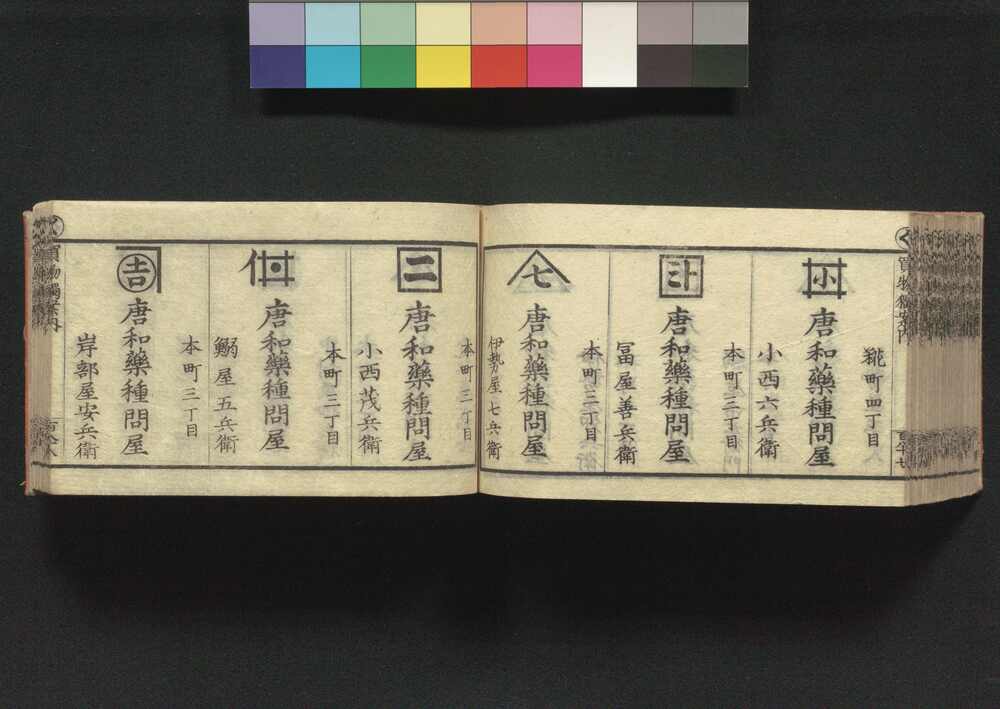 く
買物獨案内
百八十七
小
唐和藥種問屋
本町四丁目
小西六兵衛
唐和藥種問屋
本町三丁目
冨屋善兵衛
七
唐和藥種問屋
本町三丁目
伊勢屋七兵衛
二
唐和藥種問屋
本町三丁目
小西茂兵衛
唐和藥種問屋
本町三丁目
鰯屋五兵衛
吉
唐和藥種問屋
本町三丁目
岸部屋安兵衛
買物獨案内